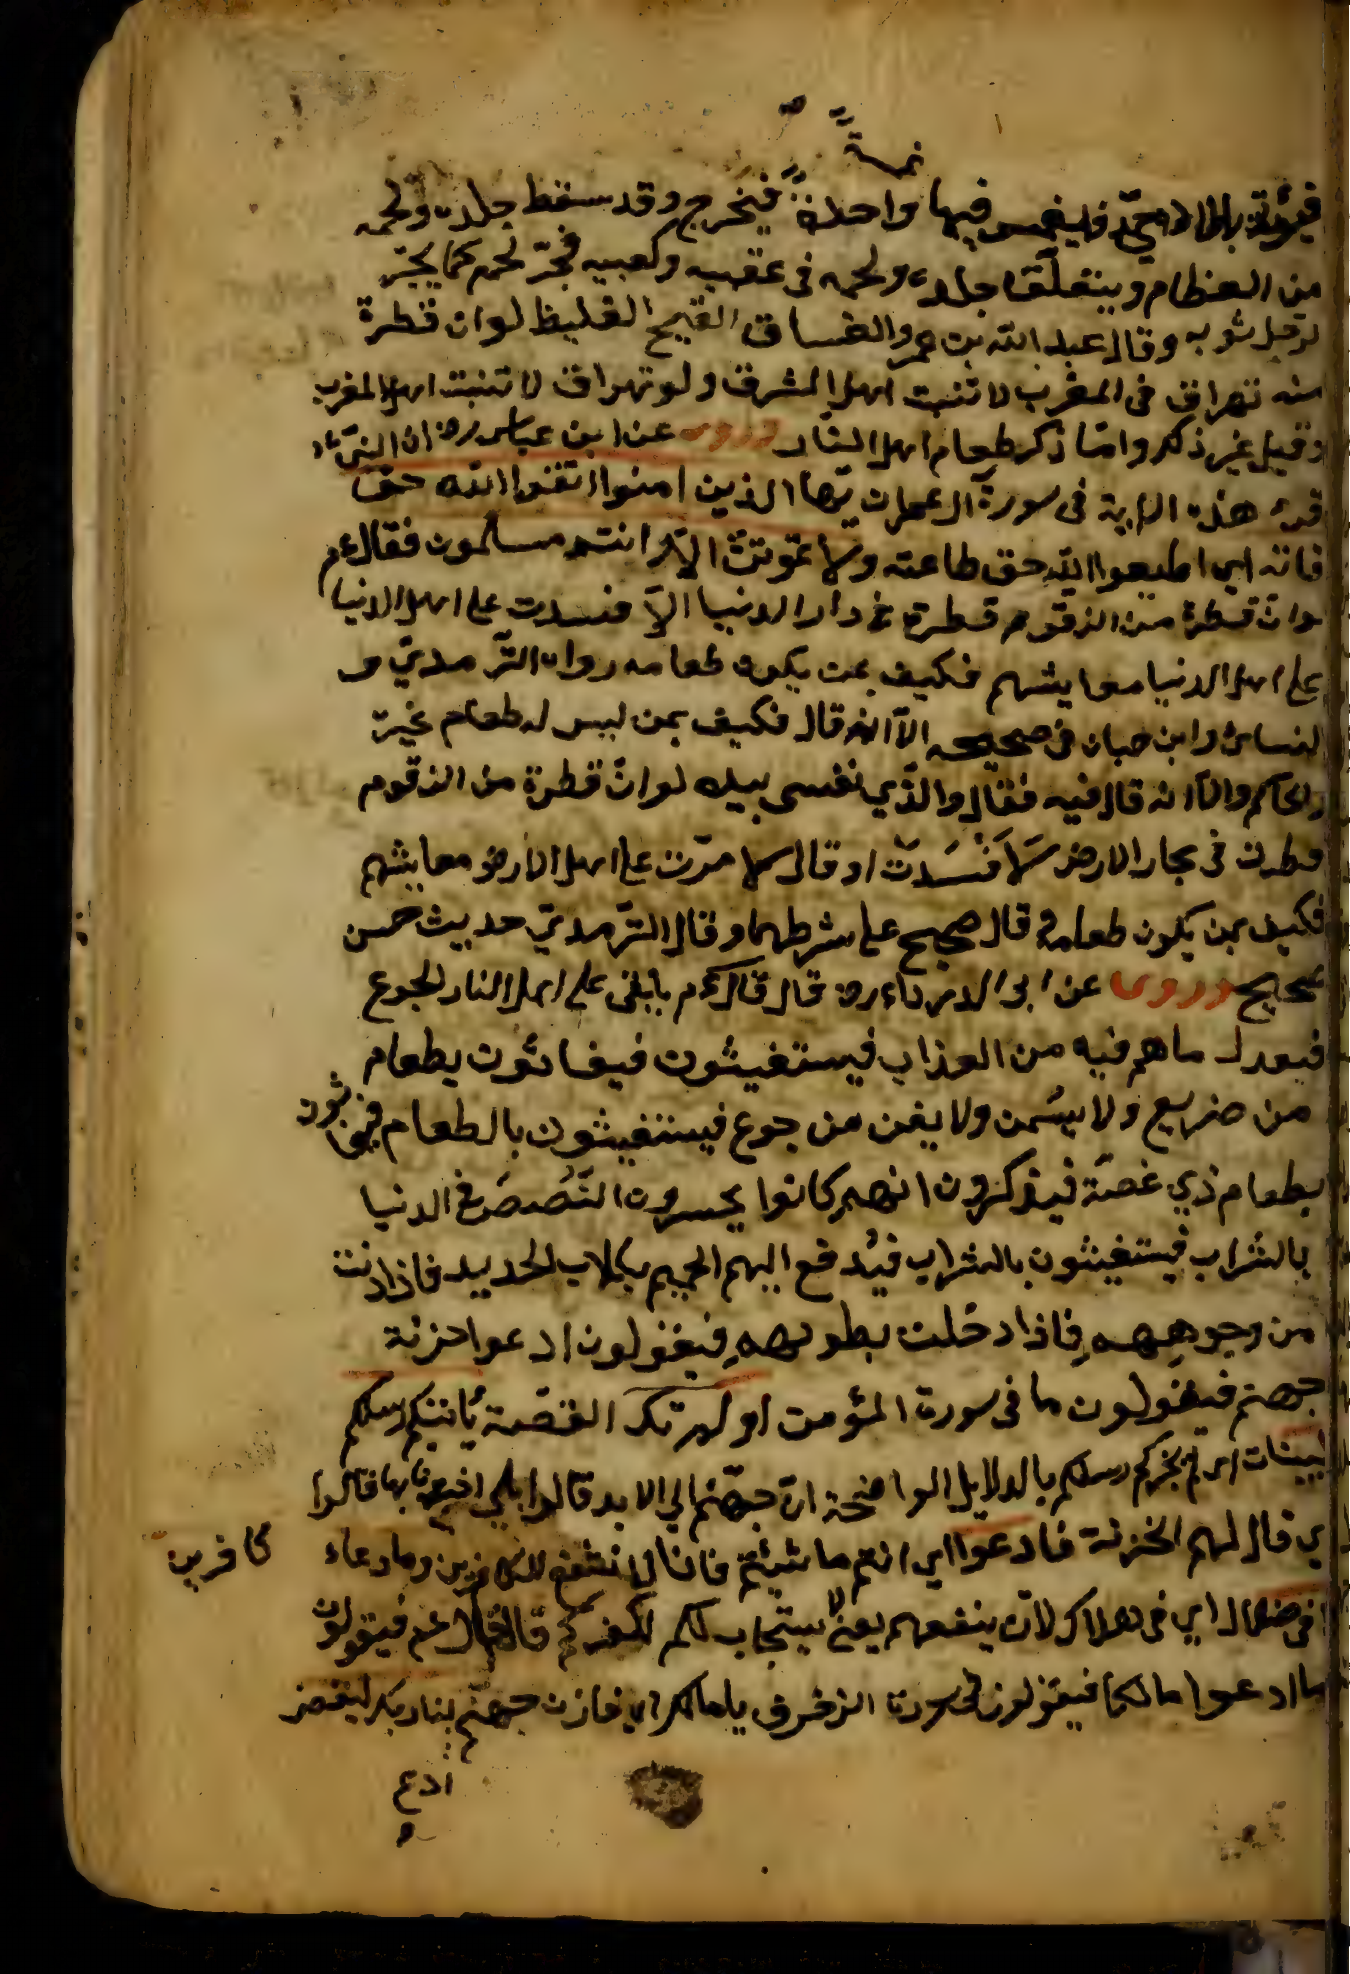 غمسة
فيؤتى بالادمي فليغمس فيها واحدة فيخرج وقد سقط جلده ولحمه
من العظام ويتعلّق جلده ولحمه فى عقبيه وكعبيه فيجرّ لحمه كما يجرّ
لرجل ثوبه وقال عبد الله بن عمر والغساق القيح الغليظ لوان قطرة
منه تهراق فى المغرب لا تنبت اهل المشرق ولو تهراق لا تنبت اهل المغرب
وقيل غير ذلك وامّا ذكر طعام اهل النار وروى عن ابن عباس رض ان النبيّ
قرء هذه الاية فى سورة آل عمران يّها الذين امنوا اتقوا الله حق
فاته اى اطيعوا الله حق طاعته ولا تموتنّ الّا وانتم مسلمون فقال عم
لوانّ قطرة من الزقوم قطرة فى دار الدنيا الّا فسدت على اهل الدنيا
على اهل الدنيا معايشهم فكيف بمن يكون طعامه رواه التّرمديّ و
لنسائ وابن حبان فى صحيحه الّا انه قال فكيف بمن ليس له طعام غيره
والحاكم والّا انه قال فيه فقال والذّي نفسى بيده لوانّ قطرة من الزقوم
قطرت فى بحار الارض لَاَفْسَدَتْ او قال لامرّت على اهل الارض معايشهم
فكيف بمن يكون طعامه وقال صحيح على شرطهما وقال التّرمديّ حديث حسن
صحيح وروى عن ابى الدرداء رض قال قال عم يلقى على اهل النار الجوع
فيعدل ما هم فيه من العذاب فيستغيثون فيغاثون بطعام
من ضريع ولا يسمن ولا يغنى من جوع فيستغيثون بالطعام فيغاثون
بطعام ذي غصّة فيذكرون انهم كانوا يجسرون الغُصَصَ فى الدنيا
بالشراب فيستغيثون بالشراب فيُدفع اليهم الحميم بكلاب الحديد فاذا دنت
من وجوههم فاذا دخلت بطونهم فيقولون ادعوا خزنة
جهنم فيقولون ما فى سورة المؤمن اولم تك القصّة يأتيكم رسلكم
لبينات اى الم يخبركم رسلكم بالدلايل الواضحة انّ جهنّم الى الابد قالوا بلى قالوا
ي قال لهم الخزنة فادعوا اي انتم ما شئتم فانا لا نشفع للكافرين وما دعاء
كافرين
فى ضلال اي فى هلاك لان ينفعهم يعنى لا يستجاب لكم لكفركم قال عم فيقولون
ادعوا مالكا فيقولون فى سورة الزخرف يا مالك اى خازن جهنّم ليقض
ادع